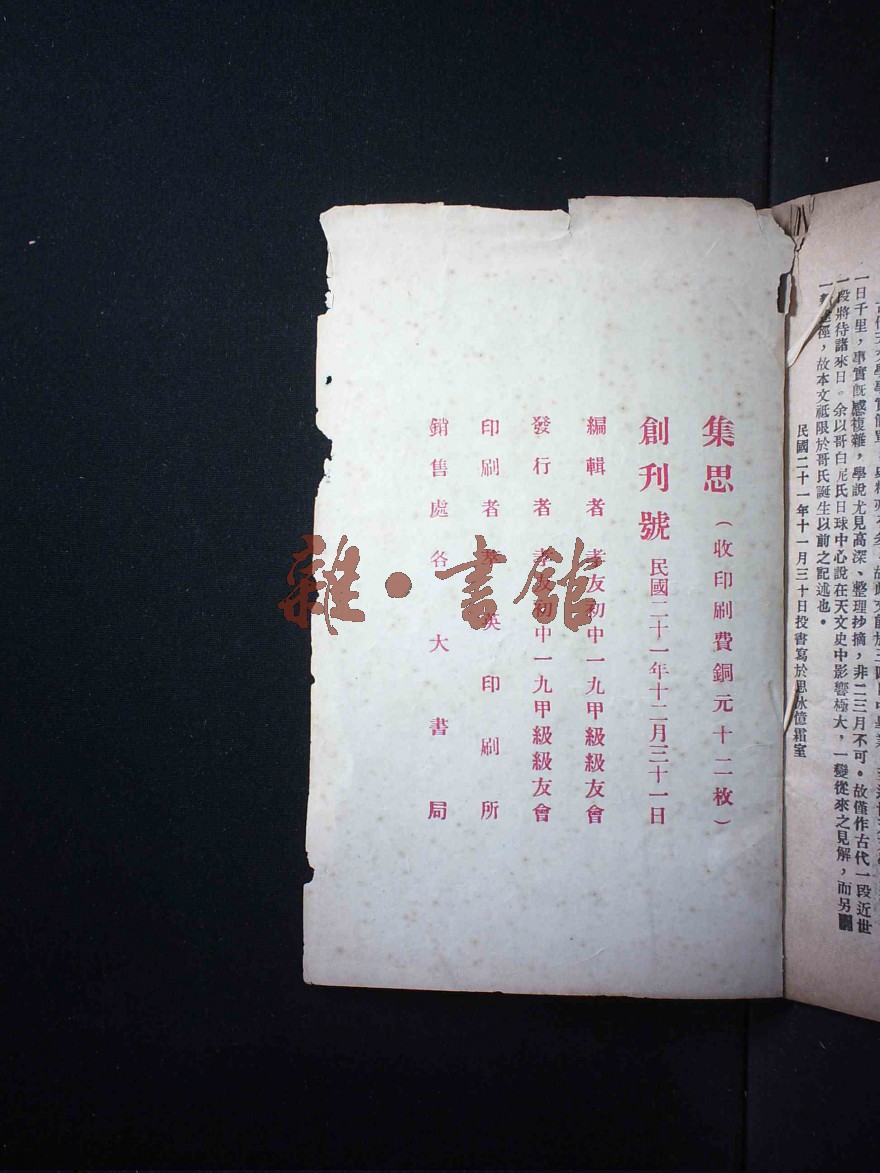 一日千里，事實旣感複雜，學說尤見高深、整理抄摘，非二三月不可。故僅作古代一段近世
一段將待諸來日。余以哥白尼氏日球中心說在天文史中影響極大，一變從來之見解，而另
徑，故本文祗限於哥氏誕生以前之記述也。
民國二十一年十一月三十日投書寫於思冰億霜室
集思（收印刷費銅元十二枚）
創刊號 民國二十一年十二月三十一日
編輯者 孝友初中一九甲級級友會
發行者 孝友初中一九甲級級友會
印刷者 英印刷所
銷售處各大書局
雜·書館